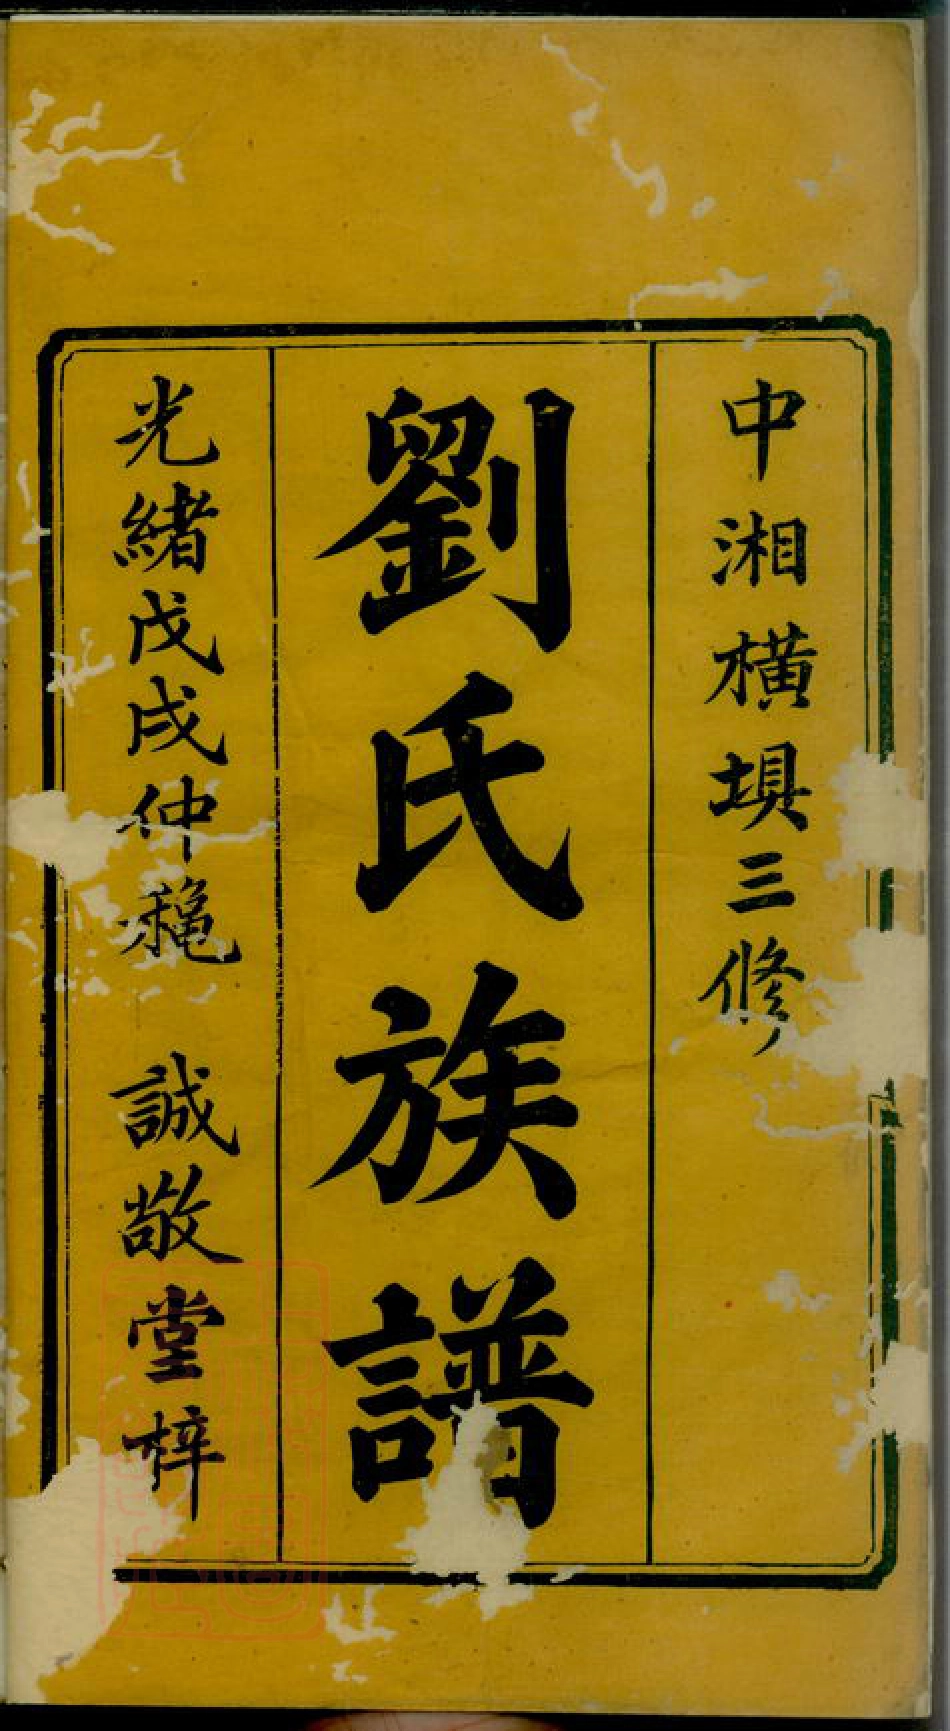 中湘橫埧三修
劉氏族譜
光緒戊戌仲穐 誠敬堂梓